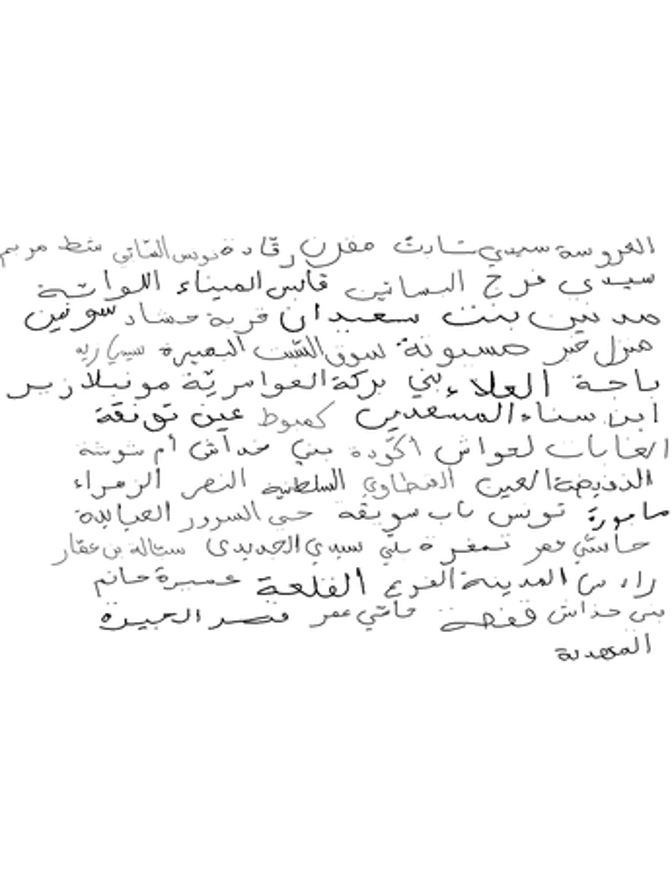 العروسة سيدي ثابت مقرن رقادة تونس الثاني شط مريم
سيدي فرج البساتين قابس الميناء اللواتة
مدنين بنت سعيدان قرية حشاد سونين
منزل خير حسيونة سوق السبت البحيرة سيدي ريه
باجة العلاء بني بركة العوامرية مونبلازير
ابن سناء المسعدين كمبوط عين تونقة
الغابات لعواش أكودة بني خداش أم شوشة
العين القطاوي السلطنية النصر الزهراء
ماجورة تونس باب سويقة حي السرور العبابدة
حاشي عمر تمغرة علي سيدي الجديدي ستالة بن عقار
رادس المدينة الفرع القلعة عميرة حاتم
بني خداش قفصة حاشي عمر قصر الجيرة
المهدية